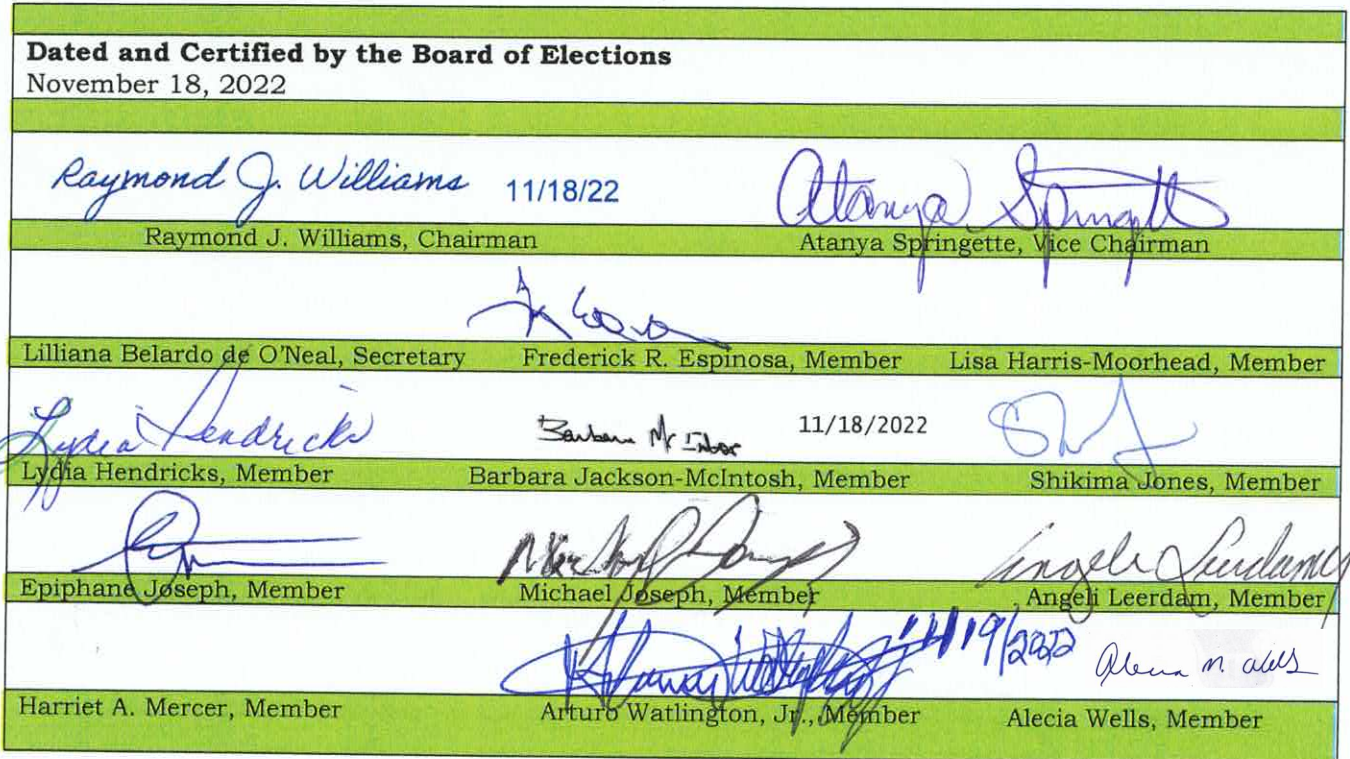 Dated and Certified by the Board of Elections
November 18, 2022
Raymond J. Williams 11/18/22
Atanya Springette
Raymond J. Williams, Chairman
Atanya Springette, Vice Chairman
Lilliana Belardo de O'Neal, Secretary
Frederick R. Espinosa, Member
Lisa Harris-Moorhead, Member
Lydia Hendricks
Barbara McIntosh 11/18/2022
Lydia Hendricks, Member
Barbara Jackson-McIntosh, Member
Shikima Jones, Member
Angeli Leerdam
Epiphane Joseph, Member
Michael Joseph, Member
Angeli Leerdam, Member
11/19/2022
Alecia M. Wells
Harriet A. Mercer, Member
Arturo Watlington, Jr., Member
Alecia Wells, Member